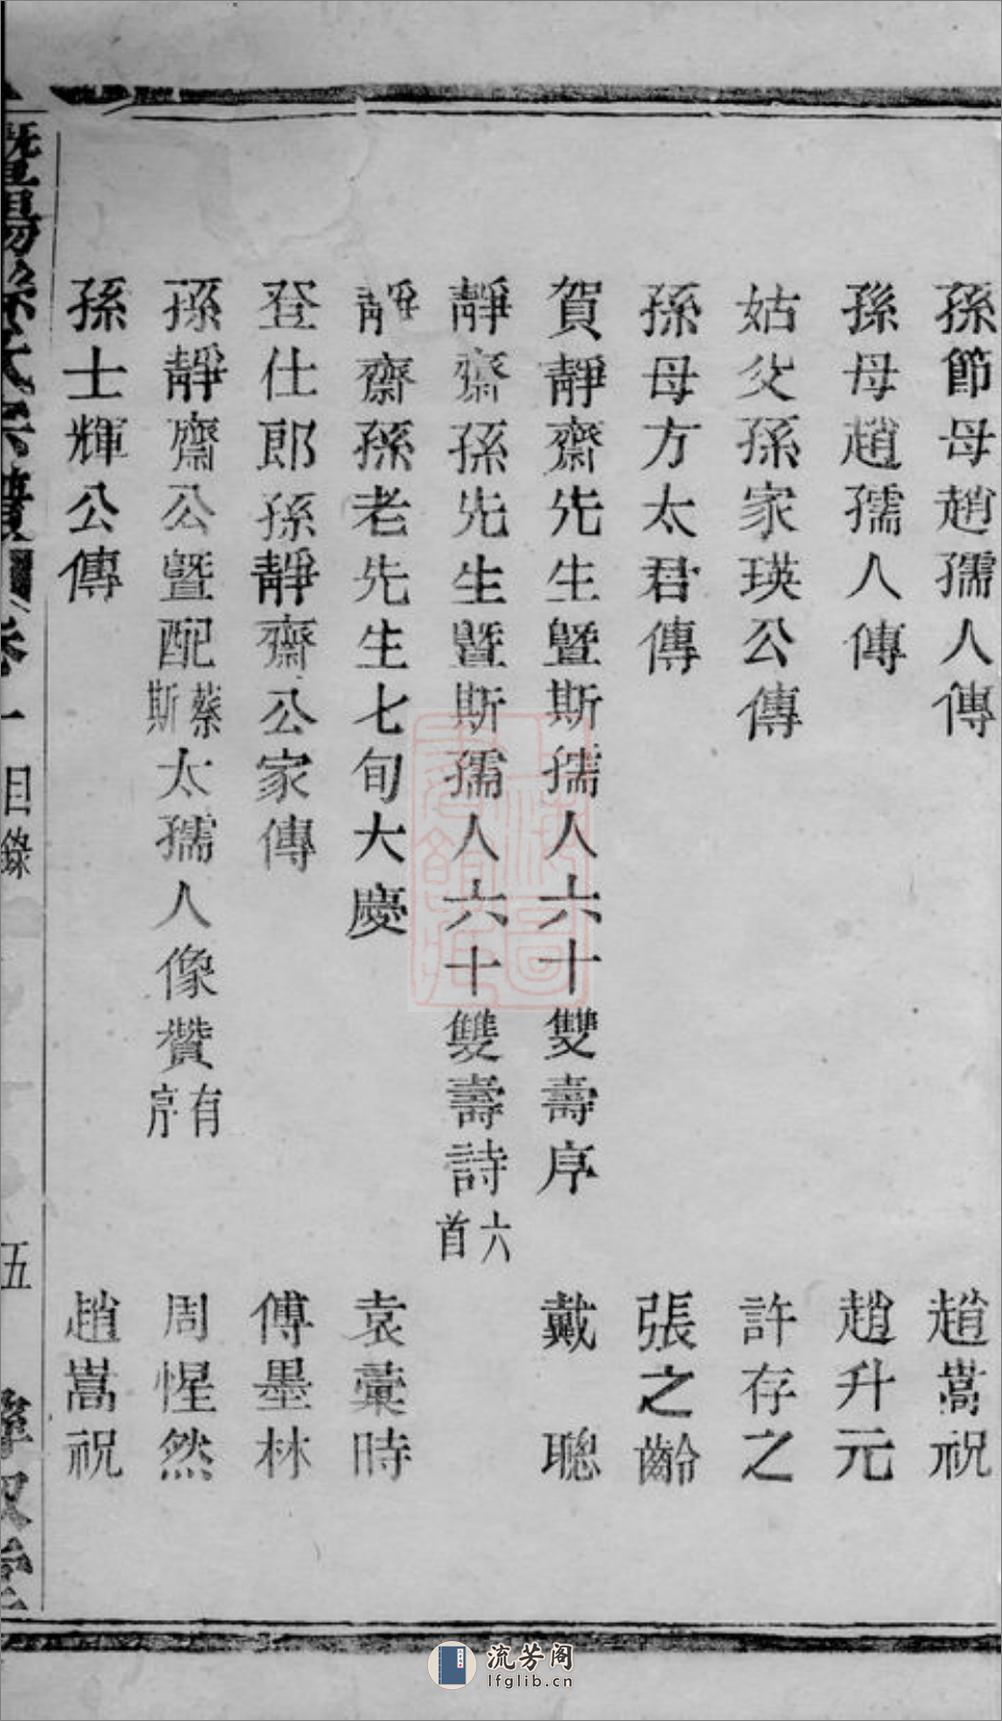 孫節母趙孺人傳　趙嵩祝
孫母趙孺人傳　趙升元
姑父孫家瑛公傳　許存之
孫母方太君傳　張之齡
賀靜齋先生暨斯孺人六十雙壽序　戴聰
靜齋孫先生暨斯孺人六十雙壽詩六首
靜齋孫老先生七旬大慶　袁蕖時
登仕郎孫靜齋公家傳　傅墨林
孫靜齋公暨配蔡斯太孺人像贊有序　周惺然
孫士輝公傳　趙嵩祝
暨陽孫氏宗譜　卷一　目錄　五
流芳阁
lfglib.cn